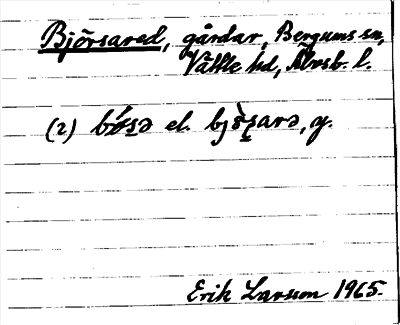 Björsared, gårdar, Bergums sn,
Vättle hd, Älvsb. l.
(2) bǿs̱ə el. bjo᷆s̱arə, y.
Erik Larsson 1965.